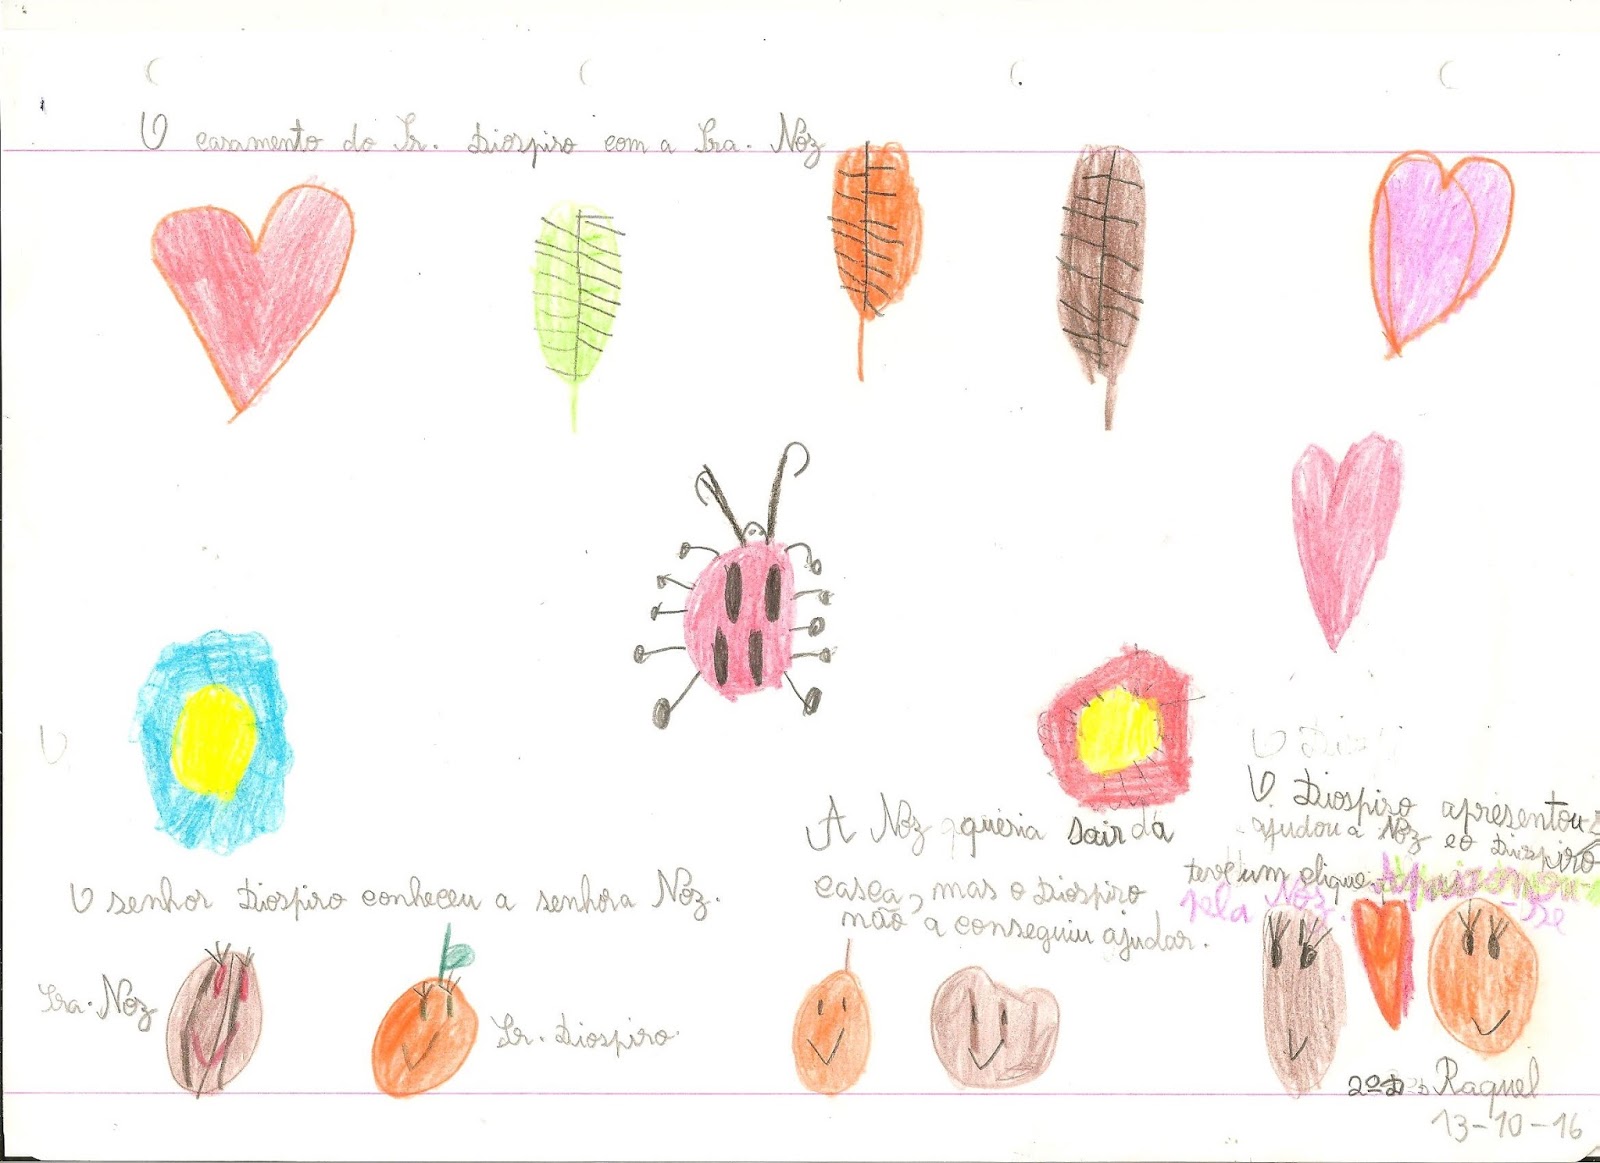 O casamento do Sr. Diospiro com a Sra. Noz
O senhor Diospiro conheceu a senhora Noz.
Sra. Noz
Sr. Diospiro
A Noz queria sair da
casca, mas o Diospiro
não a conseguiu ajudar.
O Diospiro apresentou-
ajudou a Noz e o Diospiro
teve um clique. Apaixonou-
se
pela Noz.
2ºD Raquel
13-10-16